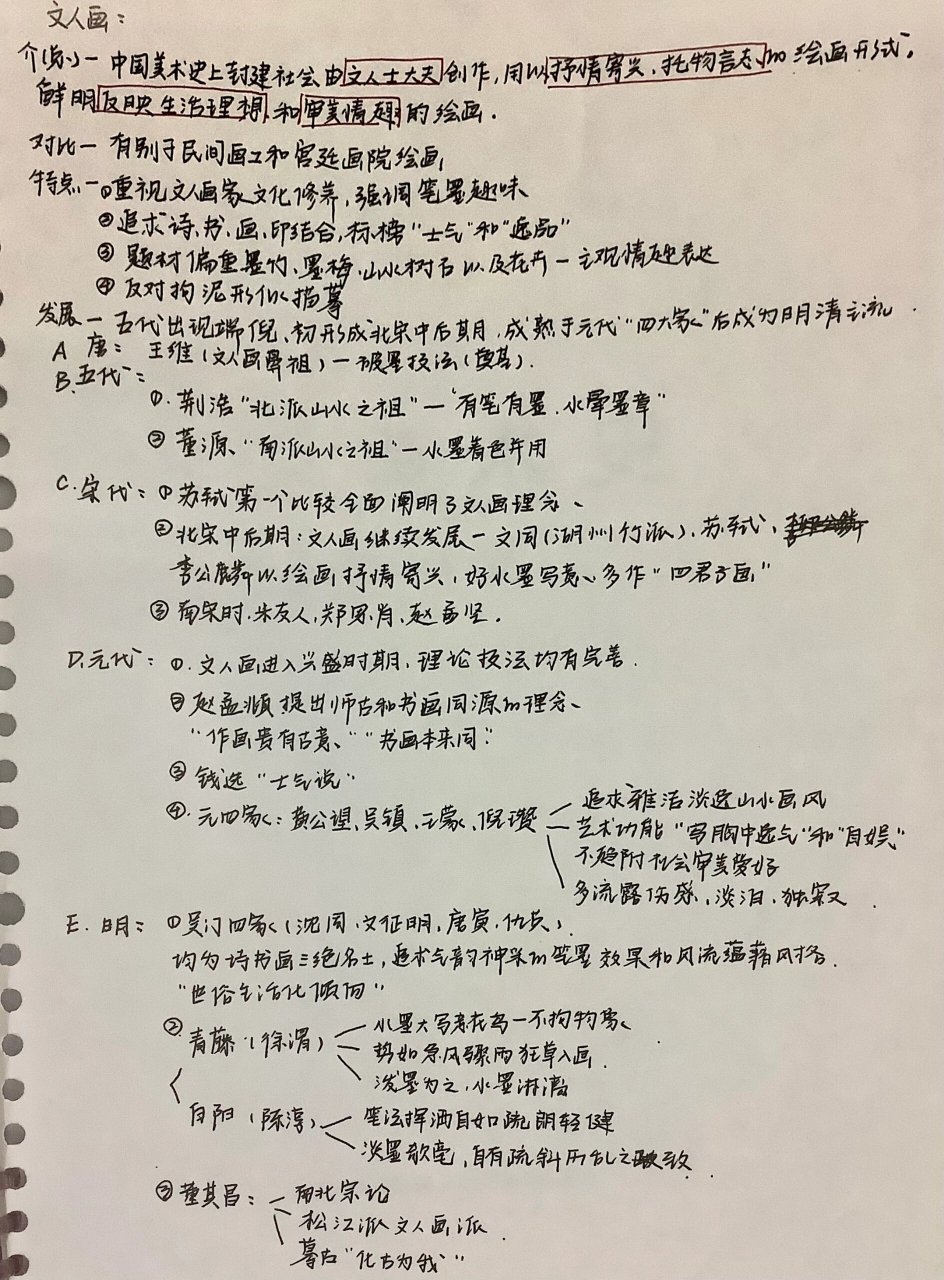 文人画：
介(绍)一 中国美术史上封建社会由文人士大夫创作，用以抒情寄兴、托物言志的绘画形式。
鲜明反映生活理想和审美情趣的绘画．
对比一 有别于民间画工和宫廷画院绘画
特点一①重视文人画家文化修养，强调笔墨趣味
②追求诗、书、画、印结合，标榜“士气”和“逸品”
③ 题材偏重墨竹、墨梅、山水树石以及花卉一主观情趣表达
④ 反对拘泥形似描摹
发展一 五代出现端倪、初形成北宋中后期，成熟于元代“四大家”后成为明清主流．
A 唐： 王维（文人画鼻祖）一破墨技法（奠基）．
B.五代：
①．荆浩“北派山水之祖”一“有笔有墨．水晕墨章”
② 董源、“南派山水之祖”一水墨着色并用
C.宋代：①苏轼第一个比较全面阐明了文人画理念、
②北宋中后期：文人画继续发展一文同(湖州竹派)、苏轼、
李公麟以绘画抒情寄兴，好水墨写意、多作“四君子画”
③ 南宋时．朱友人，郑思肖、赵孟坚．
D.元代：①．文人画进入兴盛时期，理论技法均有完善．
② 赵孟頫提出师古和书画同源的理念、
“作画贵有古意、”“书画本来同”
③ 钱选“士气说”
④．元四家：黄公望、吴镇、王蒙、倪瓒
追求雅洁淡逸山水画风
艺术功能“写胸中逸气”和“自娱”
不趋附社会审美爱好
多流露伤感、淡泊、独寂
E. 明：①吴门四家（沈周．文征明，唐寅．仇英）．
均为诗书画三绝名士，追求气韵神采的笔墨效果和风流蕴藉风格．
“世俗生活化倾向”
② 青藤（徐渭）
水墨大写意花鸟一不拘物象、
势如急风骤雨狂草入画．
泼墨为之，水墨淋漓
白阳（陈淳）
笔法挥洒自如疏朗轻健
淡墨欹毫，自有疏斜历乱之致
③董其昌：
南北宗论
松江派文人画派
摹古“化古为我”